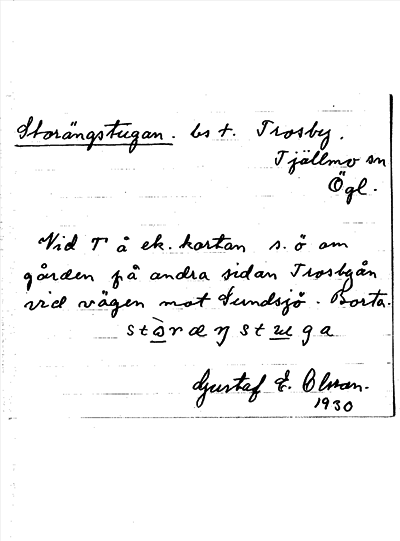 Storängstugan. bst. Trosby.
Tjällmo sn
Ögl.
Vid T å ek. kartan s. ö om
gården på andra sidan Trosbyån
vid vägen mot Sundsjö. Borta.
stòræŋstuga
Gustaf E. Olsson.
1930